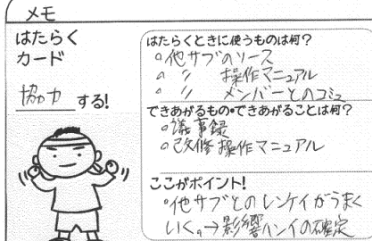 メモ
はたらく
カード
協力する!
はたらくときに使うものは何?
○他サブのソース
○ 〃 操作マニュアル
○ 〃 メンバーとのコミュ
できあがるもの・できあがることは何?
○議事録
○改修操作マニュアル
ここがポイント!
・他サブとのレンケイがうまく
いく。→影響ハンイの確定